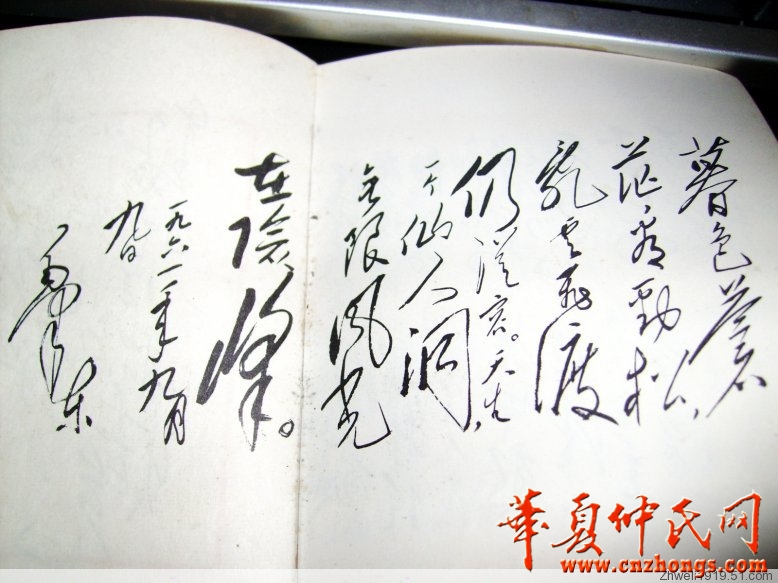 暮色蒼
茫看勁松，
亂雲飛渡
仍從容。天生
一个仙人洞，
無限風光
在險峰。
一九六一年九月
九日
毛澤東
華夏仲氏网
www.cnzhongs.com
Zhwei1919.51.com